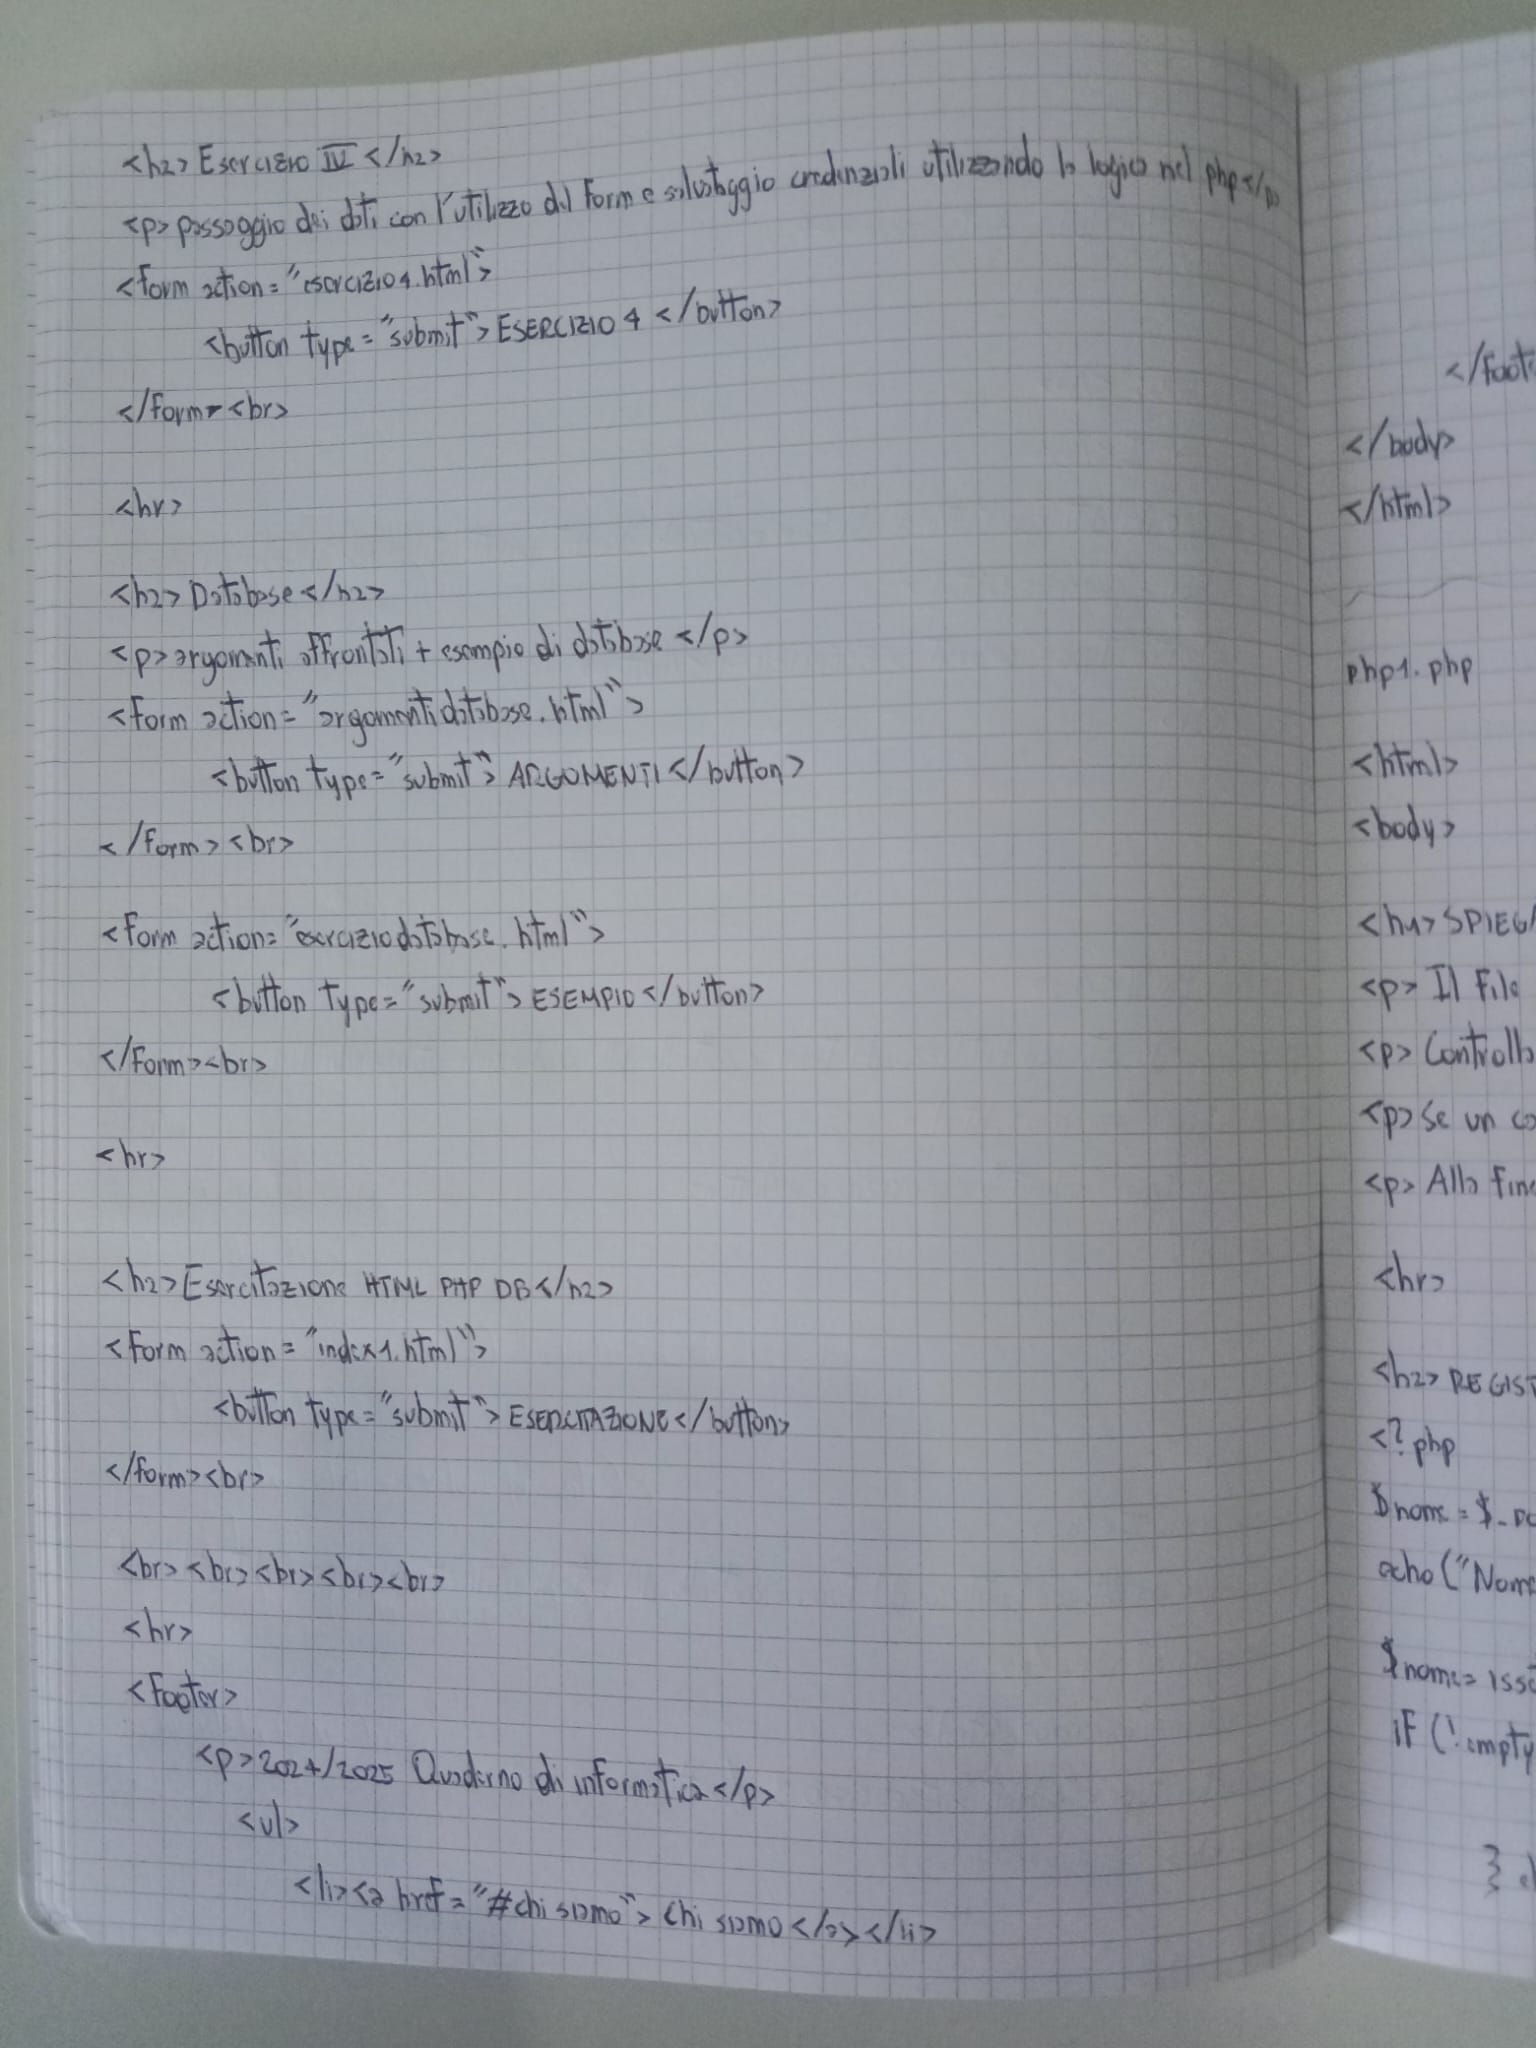 <h2> Esercizio IV </h2>
<p> passaggio dei dati con l'utilizzo del form e salvataggio credenziali utilizzando la logica nel php </p>
<form action = "esercizio4.html">
<button type = "submit"> ESERCIZIO 4 </button>
</form> <br>
<hr>
<h2> Database </h2>
<p> argomenti affrontati + esempio di database </p>
<form action = "argomentidatabase.html">
<button type = "submit"> ARGOMENTI </button>
</form> <br>
<form action = "eserciziodatabase.html">
<button type = "submit"> ESEMPIO </button>
</form> <br>
<hr>
<h2> Esercitazione HTML PHP DB </h2>
<form action = "index1.html">
<button type = "submit"> ESERCITAZIONE </button>
</form> <br>
<br> <br> <br> <br> <br>
<hr>
<footer>
<p> 2024/2025 Quaderno di informatica </p>
<ul>
<li> <a href = "#chi siamo"> Chi siamo </a> </li>
</body>
</html>
php1.php
<html>
<body>
<h1>
<p> Il file
<p>
<p> Se un
<p> Alla
<hr>
<h2>
<?php
$nome =
echo ("Nome
$nome =
if (!empty
}